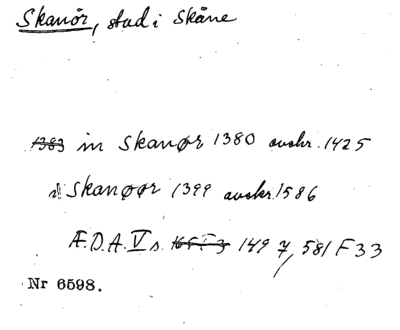 Skanör, stad i Skåne
1383 in Skanør 1380 avskr. 1425
i Skanoør 1399 avskr. 1586
Æ.D.A. V s. 149 7, 581 F 33
Nr 6598.